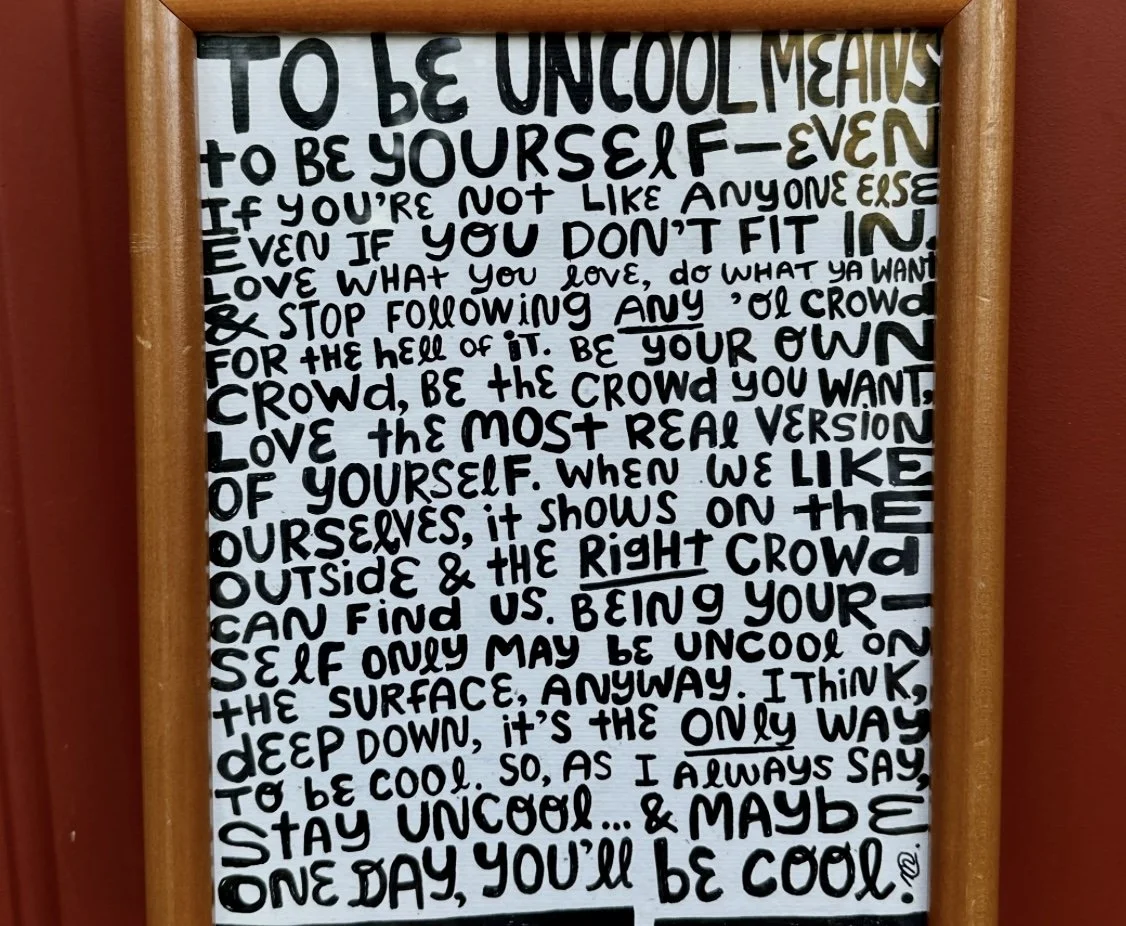 TO bE UNCOOL MEANS
to BE YOURSElF—EVEN
If YOU'RE NOt LIKE ANYONE ElSE
EVEN IF YOU DON'T FIT IN.
LOVE WHAt you lovE, do WHAT YA WANT
& STOP FOllowiNg ANY 'Ol CROWd
FOR tHE hEll OF iT. BE YOUR OWN
CROWd, BE thE CROWd YOU WANT,
LOVE thE MOSt REAl VERSiON
OF YOURSElF. WhEN WE LIKE
OURSElVES, it ShOWS ON thE
OUTSidE & tHE RigHt CROWd
CAN FiNd US. BEINg YOUR—
SElF ONly MAY bE UNCOOl ON
tHE SURFACE, ANYWAY. I THiNK,
dEEP DOWN, it'S tHE ONly WAY
TO bE COOl. SO, AS I AlWAYS SAY,
StAY UNCOOl... & MAYbE
ONE DAY, YOU'll bE COOl.